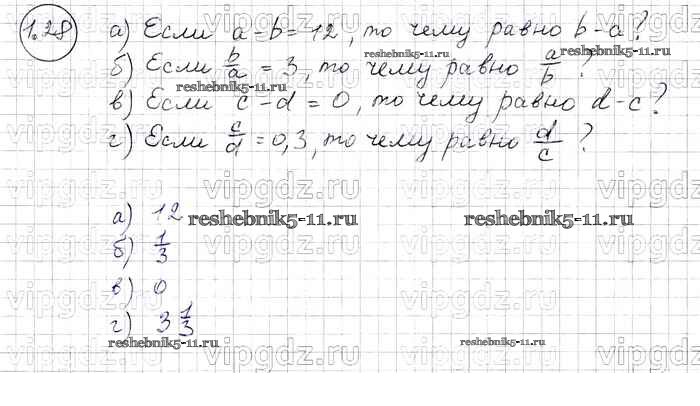 1.28
а) Если a-b=12, то чему равно b-a?
б) Если b/a = 3, то чему равно a/b ?
в) Если c-d=0, то чему равно d-c?
г) Если c/d =0,3, то чему равно d/c ?
а) 12
б) 1/3
в) 0
г) 3 1/3
reshebnik5-11.ru
reshebnik5-11.ru
reshebnik5-11.ru
reshebnik5-11.ru
reshebnik5-11.ru
reshebnik5-11.ru
vipgdz.ru